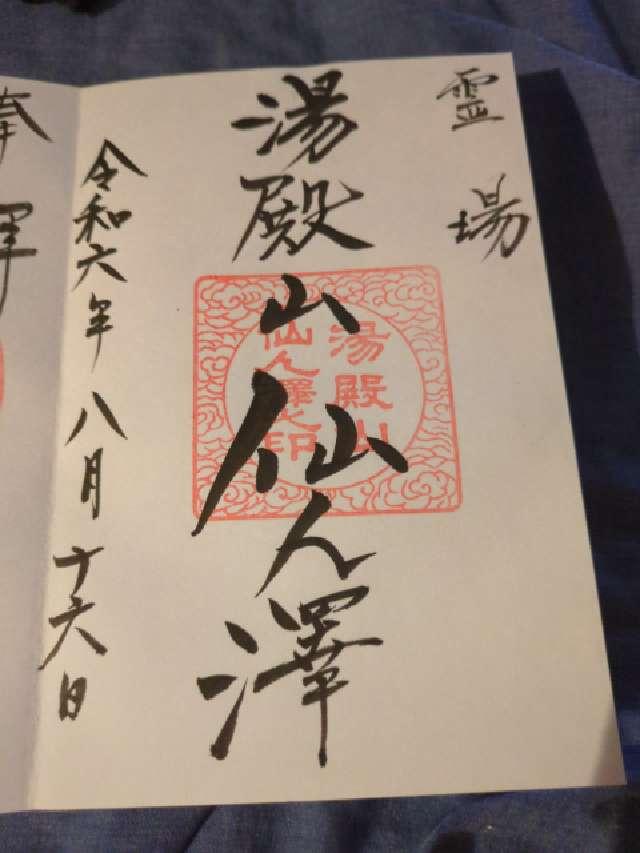 霊場
湯殿山仙人澤
湯殿山
仙人澤之印
令和六年八月十六日
奉拝